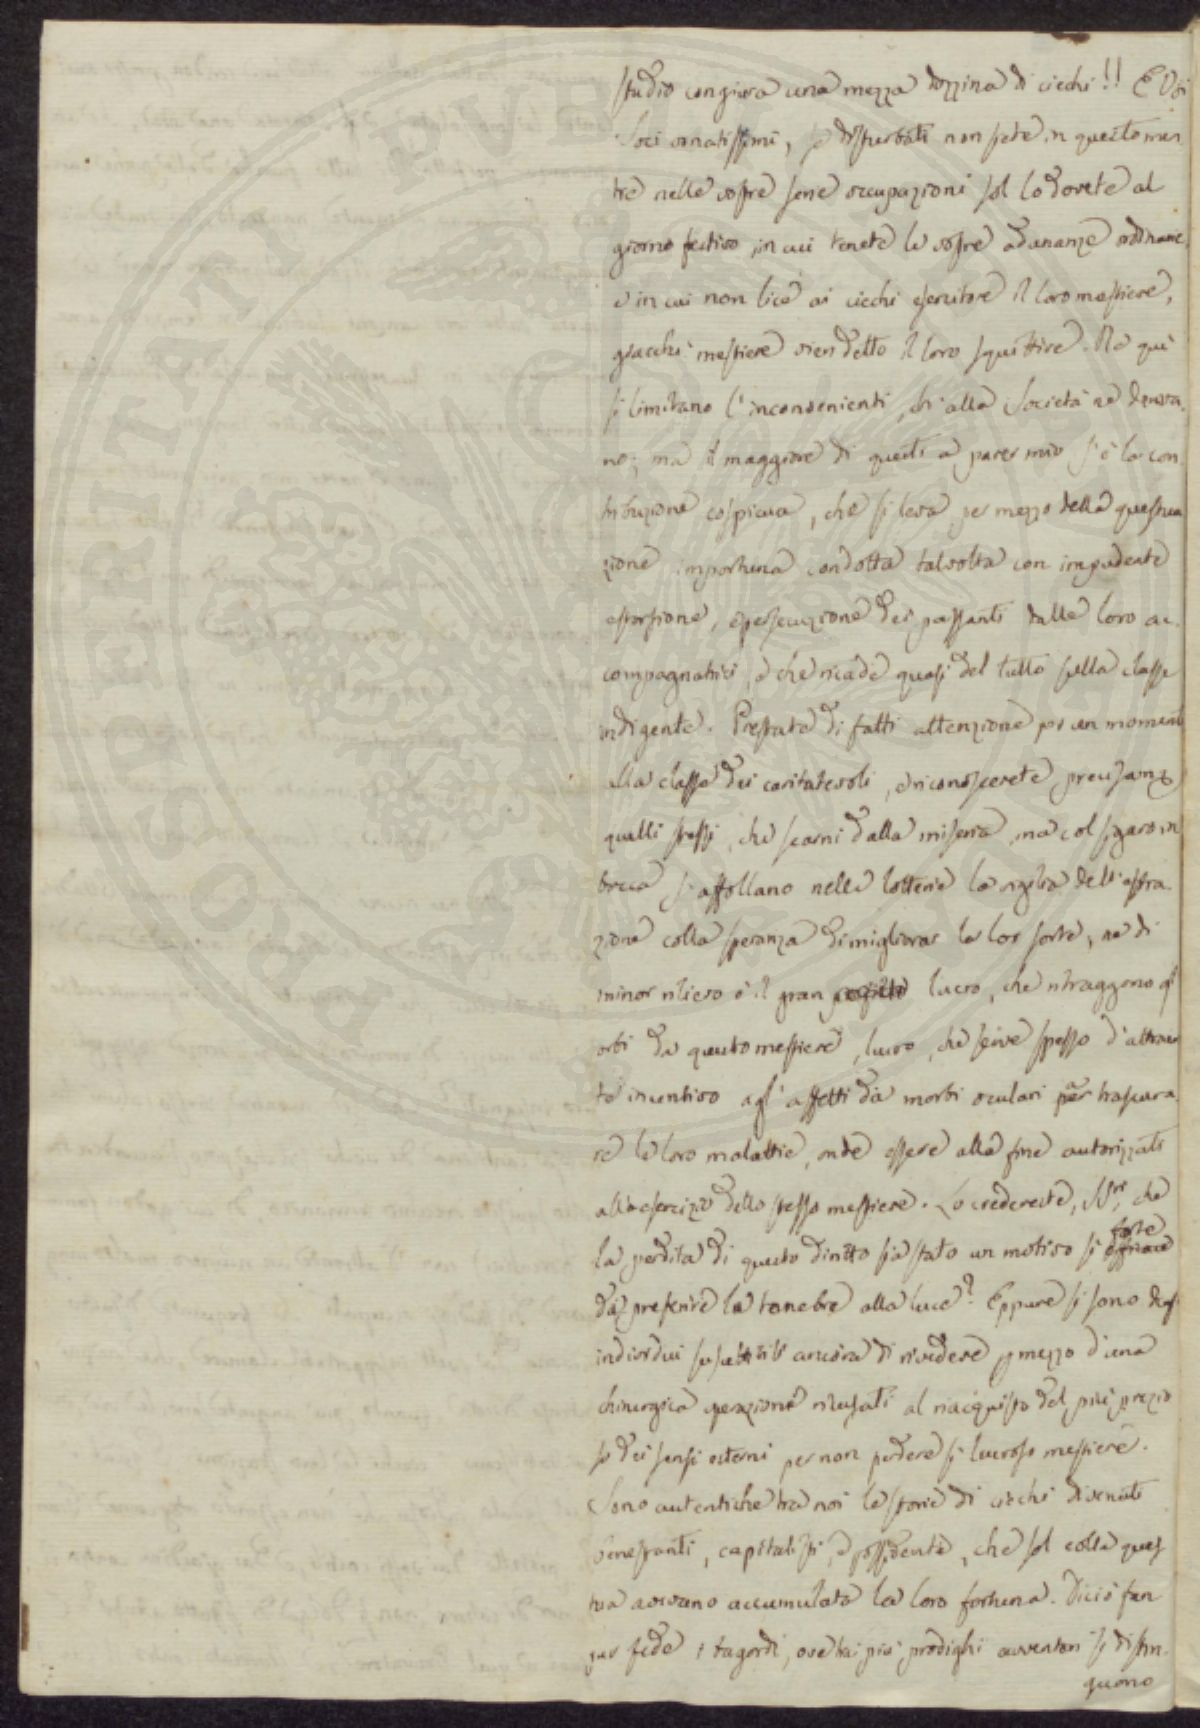 studio congiura una mezza dozzina di ciechi!! E Voi
Soci ornatissimi, se disturbati non siete in questo men
tre nelle vostre serie occupazioni sol lo dovete al
giorno festivo in cui tenete le vostre adunanze ordinarie
e in cui non lice ai ciechi esercitare il loro mestiere,
giacchè mestiere vien detto il loro squittire. Nè quì
si limitano l'inconvenienti, ch'alla Società ne deriva-
no; ma il maggiore di questi a parer mio si è la con
tribuzione cospicua, che si leva per mezzo della questua
zione importuna condotta talvolta con impudente
estorsione, e persecuzione dei passanti dalle loro ac-
compagnatrici, e che ricade quasi del tutto sulla classe
indigente. Prestate di fatti attenzione per un momento
alla classe dei caritatevoli, e riconoscerete
quelli stessi, che scarni dalla miseria, ma col sigaro in
bocca si affollano nelle lotterie la vigilia dell'estra-
zione colla speranza di migliorar la lor sorte, ne di
minor rilievo è il gran lucro, che ritraggono gl'
orbi da questo mestiere, lucro, che serve spesso d'attraen
te incentivo agl'affetti da morbi oculari per trascura-
re le loro malattie, onde essere alla fine autorizzati
all'esercizio dello stesso mestiere. Lo credereste, SSri, che
la perdita di questo diritto sia stato un motivo sì forte
da preferire le tenebre alla luce? Eppure si sono degl'
individui suscettibili ancora di rivedere p mezzo d'una
chirurgica operazione ricusati al riacquisto del più prezio
so dei sensi esterni per non perdere sì lucroso mestiere.
Sono autentiche tra noi le storie di ciechi divenuti
benestanti, capitalisti, e possidenti, che sol colla ques
tua avevano accumulata la loro fortuna. Di ciò fan
pur fede i tagordi, ove tra i più prodighi avventori si distin-
guono